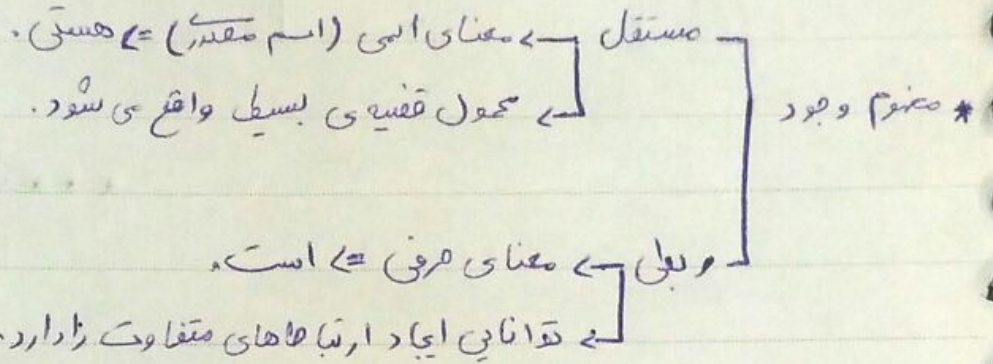 مستقل ← معنای اسمی (اسم مصدر) ⇐ هستی.
← محمول قضیه‌ی بسیط واقع می‌شود.
* مفهوم وجود
ربطی ← معنای حرفی ⇐ است.
← توانایی ایجاد ارتباط‌های متفاوت را دارد.